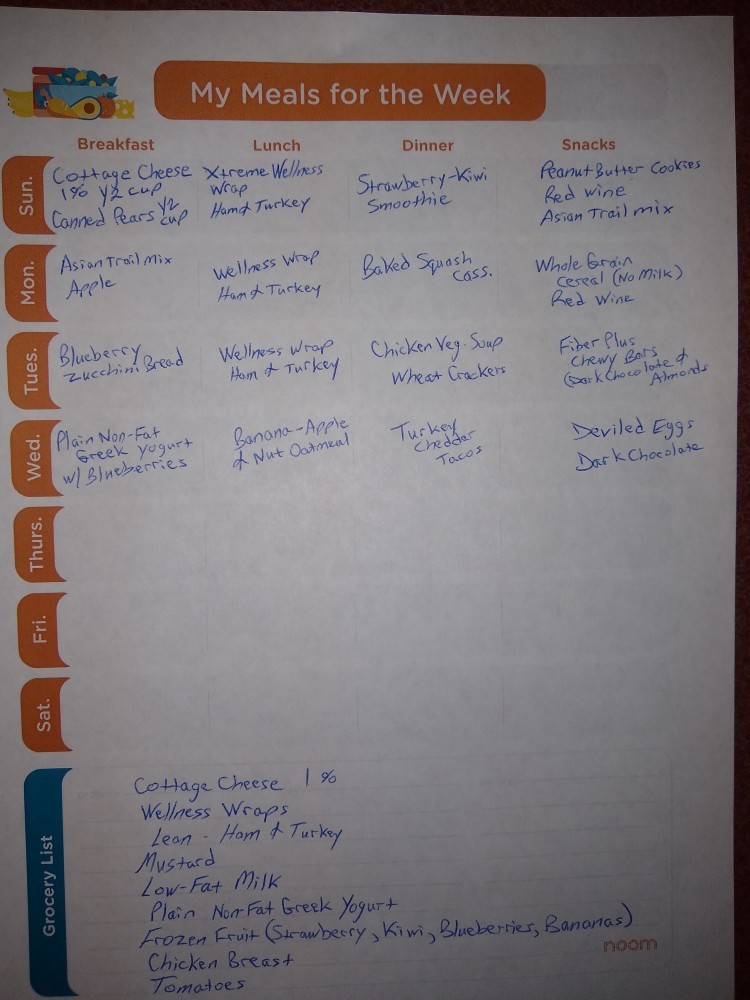 My Meals for the Week
Breakfast Lunch Dinner Snacks
Sun.
Cottage Cheese
1% 1/2 cup
Canned Pears 1/2 cup
Xtreme Wellness
Wrap
Ham & Turkey
Strawberry-Kiwi
Smoothie
Peanut Butter Cookies
Red wine
Asian Trail mix
Mon.
Asian Trail mix
Apple
Wellness Wrap
Ham & Turkey
Baked Squash
Cass.
Whole Grain
Cereal (No Milk)
Red Wine
Tues.
Blueberry
Zucchini Bread
Wellness Wrap
Ham & Turkey
Chicken Veg. Soup
Wheat Crackers
Fiber Plus
Chewy Bars
(Dark Chocolate &
Almonds
Wed.
Plain Non-Fat
Greek Yogurt
w/ Blueberries
Banana-Apple
& Nut Oatmeal
Turkey
Cheddar
Tacos
Deviled Eggs
Dark Chocolate
Thurs.
Fri.
Sat.
Grocery List
Cottage Cheese 1%
Wellness Wraps
Lean - Ham & Turkey
Mustard
Low-Fat Milk
Plain Non-Fat Greek Yogurt
Frozen Fruit (Strawberry, Kiwi, Blueberries, Bananas)
noom
Chicken Breast
Tomatoes